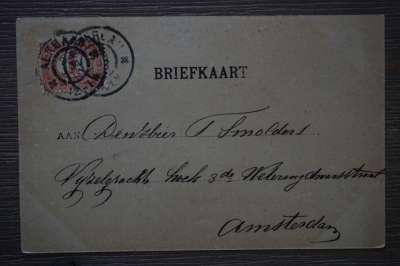 ALKMAAR
BRIEFKAART
AAN Den Heer T Smolders
Vijzelgracht hoek 3de Weteringdwarsstraat
Amsterdam